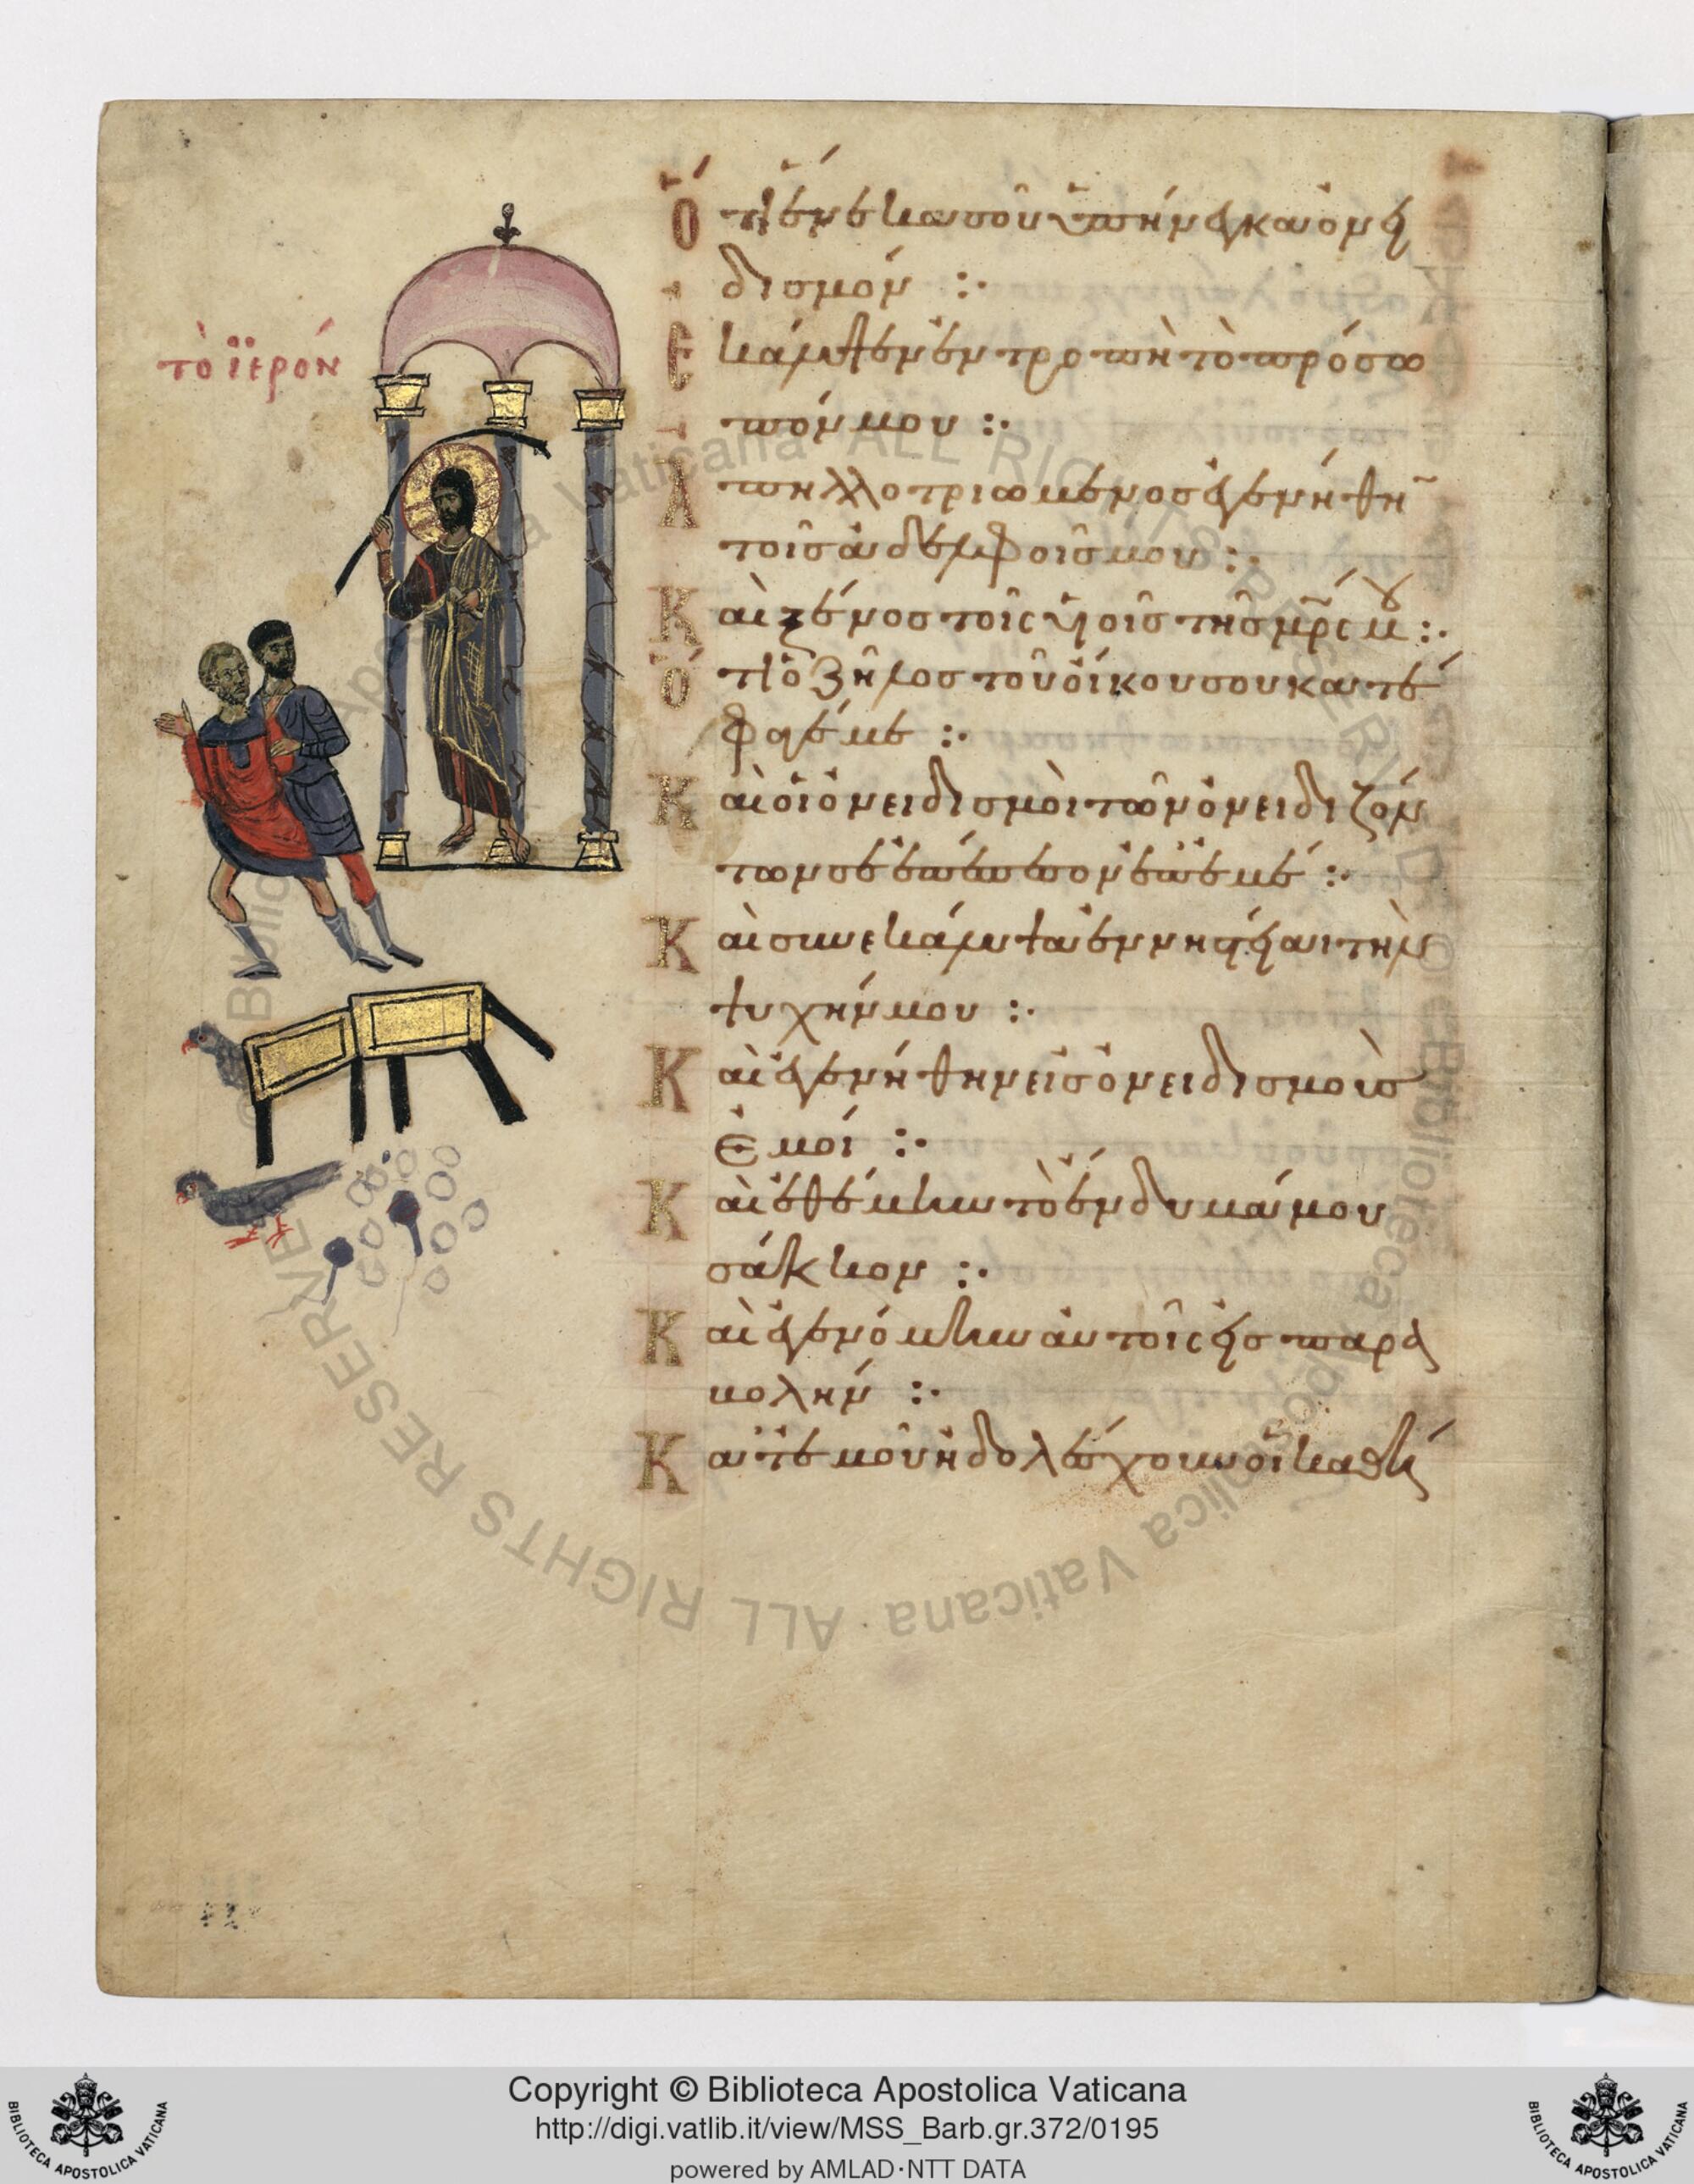 τὸ ϊερόν
Ὅτι ἕνεκα σοῦ ὑπήνεγκα ὀνει
δισμόν :·
Ἐκάλυψεν ἐντροπὴ τὸ πρόσω
πόν μου :·
Ἀπηλλοτριωμένος ἐγενήθην
τοῖς ἀδελφοῖς μου :·
Καὶ ξένος τοῖς υἱοῖς τῆς μρ̅ς μου :·
Ὅτι ὁ ζῆλος τοῦ οἴκου σου κατέ
φαγέ με :·
Καὶ οἱ ὀνειδισμοὶ τῶν ὀνειδιζόν
των σε ἐπέπεσον ἐπ' ἐμέ :·
Καὶ συνεκάλυψα ἐν νηστείαι τὴν
ψυχήν μου :·
Καὶ ἐγενήθην εἰς ὀνειδισμοὺς
ἐμοί :·
Καὶ ἐθέμην τὸ ἔνδυμά μου
σάκκον :·
Καὶ ἐγενόμην αὐτοῖς εἰς παρα
βολήν :·
Κατ' ἐμοῦ ἠδολέσχουν οἱ καθή
Copyright © Biblioteca Apostolica Vaticana
http://digi.vatlib.it/view/MSS_Barb.gr.372/0195
powered by AMLAD·NTT DATA
BIBLIOTECA APOSTOLICA VATICANA
BIBLIOTECA APOSTOLICA VATICANA